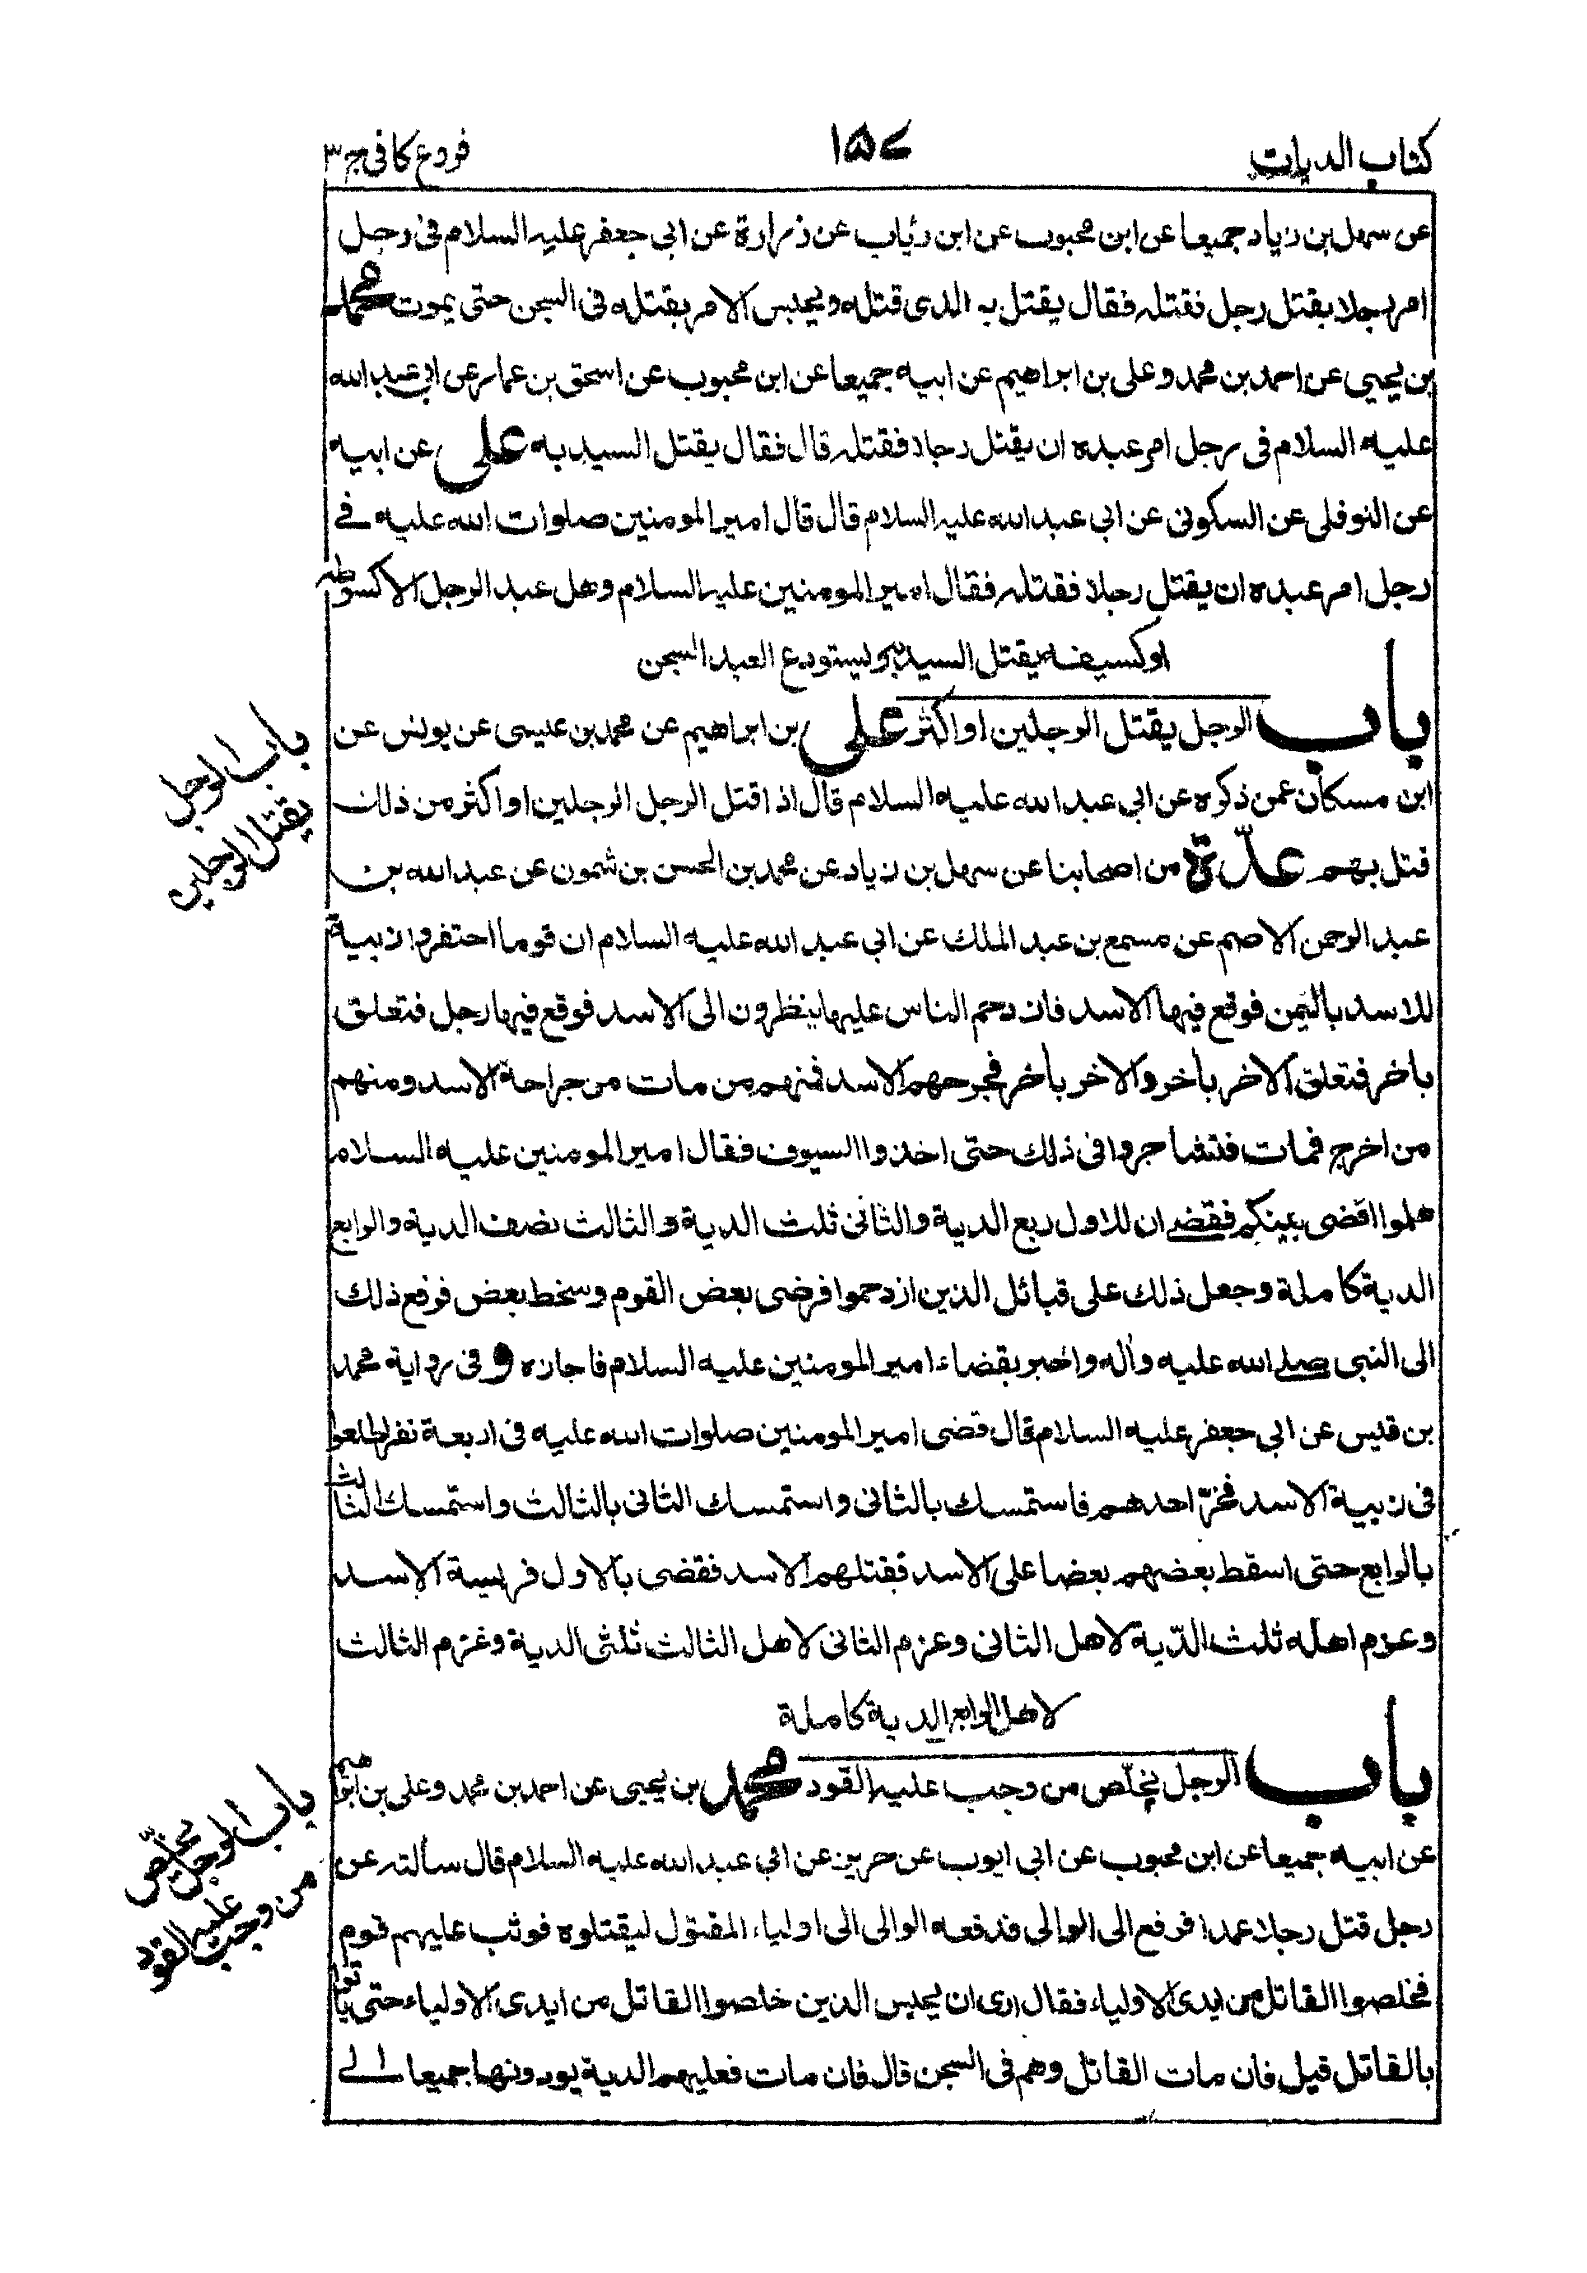 كتاب الديات
١٥٧
فروع كافى ج ٣
عن سهل بن زياد جميعا عن ابن محبوب عن ابن رئاب عن زرارة عن ابى جعفر عليه السلام فى رجل
امر رجلا بقتل رجل فقتله فقال يقتل به الذى قتله ويحبس الامر بقتله فى السجن حتى يموت محمد
بن يحيى عن احمد بن محمد وعلى بن ابراهيم عن ابيه جميعا عن ابن محبوب عن اسحق بن عمار عن ابى عبد الله
عليه السلام فى رجل امر عبده ان يقتل رجلا فقتله قال فقال يقتل السيد به على عن ابيه
عن النوفلى عن السكونى عن ابى عبد الله عليه السلام قال قال امير المومنين صلوات الله عليه فى
رجل امر عبده ان يقتل رجلا فقتله فقال امير المومنين عليه السلام وهل عبد الرجل الا كسوطه
او كسيفه يقتل السيد به ويستودع العبد السجن
باب الرجل يقتل الرجلين او اكثر على بن ابراهيم عن محمد بن عيسى عن يونس عن
ابن مسكان عمن ذكره عن ابى عبد الله عليه السلام قال اذا قتل الرجل الرجلين او اكثر من ذلك
قتل بهم عدّة من اصحابنا عن سهل بن زياد عن محمد بن الحسن بن شمون عن عبد الله بن
عبد الرحمن الاصم عن مسمع بن عبد الملك عن ابى عبد الله عليه السلام ان قوما احتفروا زبية
للاسد باليمن فوقع فيها الاسد فازدحم الناس عليها ينظرون الى الاسد فوقع فيها رجل فتعلق
بأخر فتعلق الاخر بأخر والاخر بأخر فجرحهم الاسد فمنهم من مات من جراحة الاسد ومنهم
من اخرج فمات فتشاجروا فى ذلك حتّى اخذوا السيوف فقال امير المومنين عليه السلام
هلموا اقضى بينكم فقضى ان للاول ربع الدية والثانى ثلث الدية والثالث نصف الدية والرابع
الدية كاملة وجعل ذلك على قبائل الذين ازدحموا فرضى بعض القوم وسخط بعض فرفع ذلك
الى النبى صلى الله عليه وأله واخبر بقضاء امير المومنين عليه السلام فاجازه و فى رواية محمد
بن قيس عن ابى جعفر عليه السلام قال قضى امير المومنين صلوات الله عليه فى اربعة نفر اطلعوا
فى زبية الاسد فخرّ احدهم فاستمسك بالثانى واستمسك الثانى بالثالث واستمسك الثالث
بالرابع حتى اسقط بعضهم بعضا على الاسد فقتلهم الاسد فقضى بالاول فريسة الاسد
وغرم اهله ثلث الدّية لاهل الثانى وغرم الثانى لاهل الثالث ثلثى الدية وغرم الثالث
لاهل الرابع الدية كاملة
باب الرجل يخلّص من وجب عليه القود محمد بن يحيى عن احمد بن محمد وعلى بن ابراهيم
عن ابيه جميعا عن ابن محبوب عن ابى ايوب عن حريز عن ابى عبد الله عليه السلام قال سألته عن
رجل قتل رجلا عمدا فرفع الى الوالى فدفعه الوالى الى اولياء المقتول ليقتلوه فوثب عليهم قوم
فخلصوا القاتل من ايدى الاولياء فقال ارى ان يحبس الذين خلصوا القاتل من ايدى الاولياء حتى ياتوا
بالقاتل قيل فان مات القاتل وهم فى السجن قال فان مات فعليهم الدية يودونها جميعا الى
باب الرجل
يقتل الرجلين
باب الرجل يخلّص
من وجب عليه القود